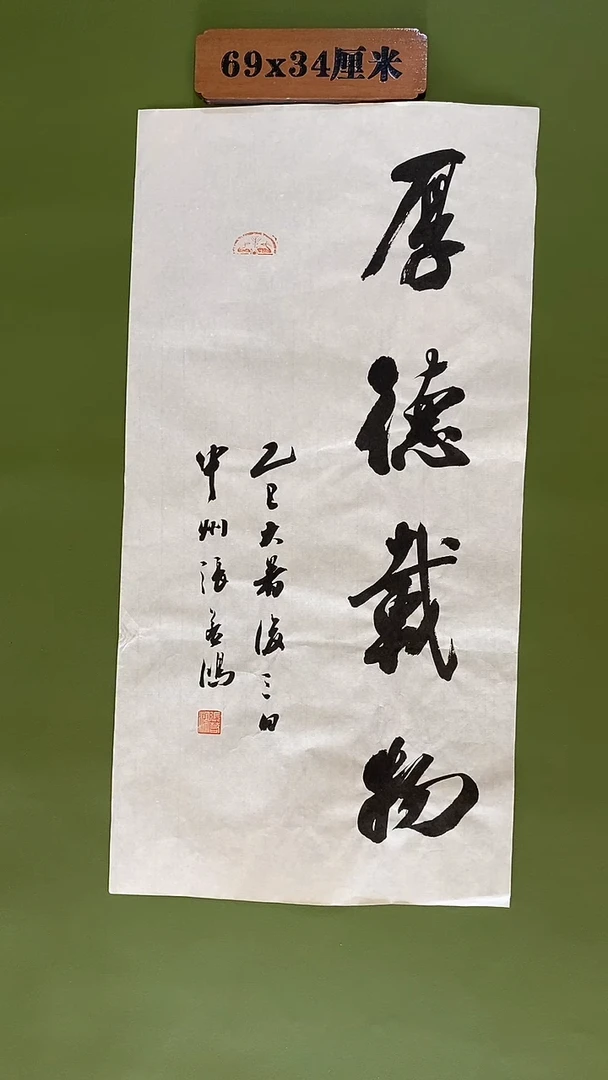 69x34厘米
厚德載物
乙巳大暑後三日
中州張善鴻